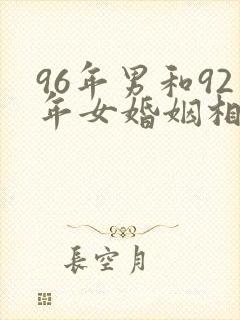 96年男和92
年女婚姻相
長空月